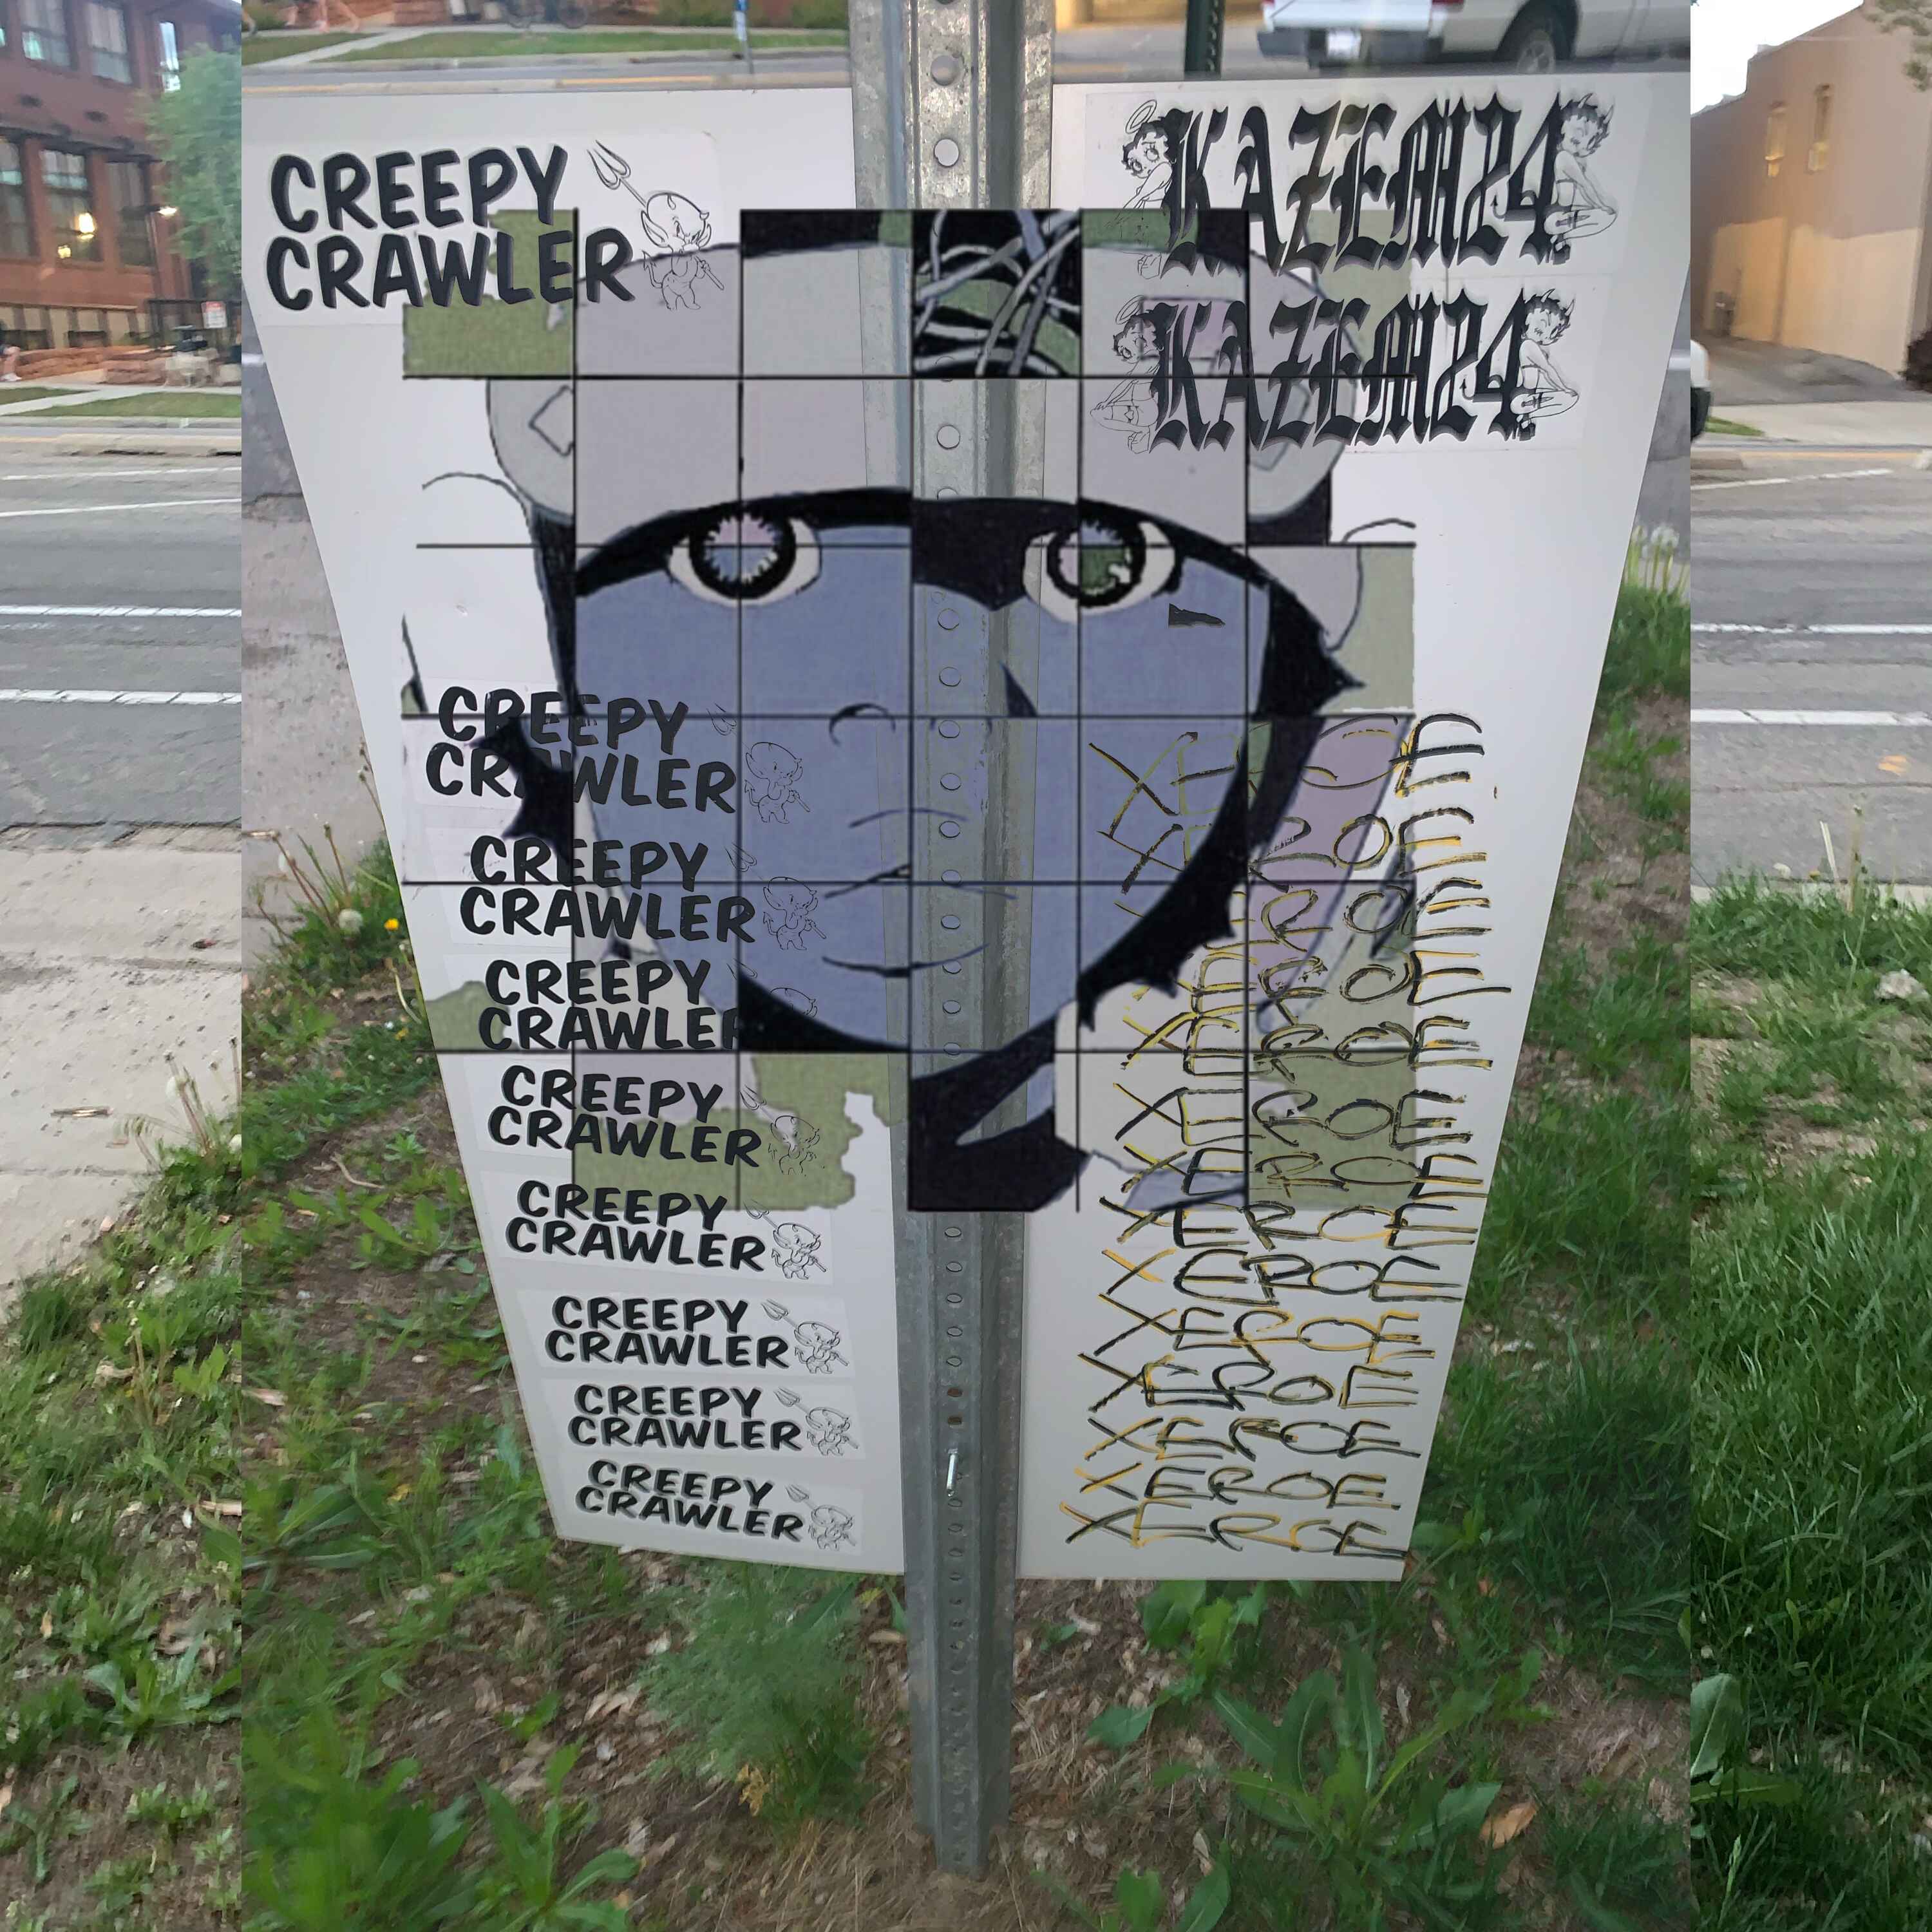 CREEPY
CRAWLER
CREEPY
CRAWLER
CREEPY
CRAWLER
CREEPY
CRAWLER
CREEPY
CRAWLER
CREEPY
CRAWLER
CREEPY
CRAWLER
CREEPY
CRAWLER
CREEPY
CRAWLER
KAZEM24
KAZEM24
XEROE
XEROE
XEROE
XEROE
XEROE
XEROE
XEROE
XEROE
XEROE
XEROE
XEROE
XEROE
XEROE
XEROE